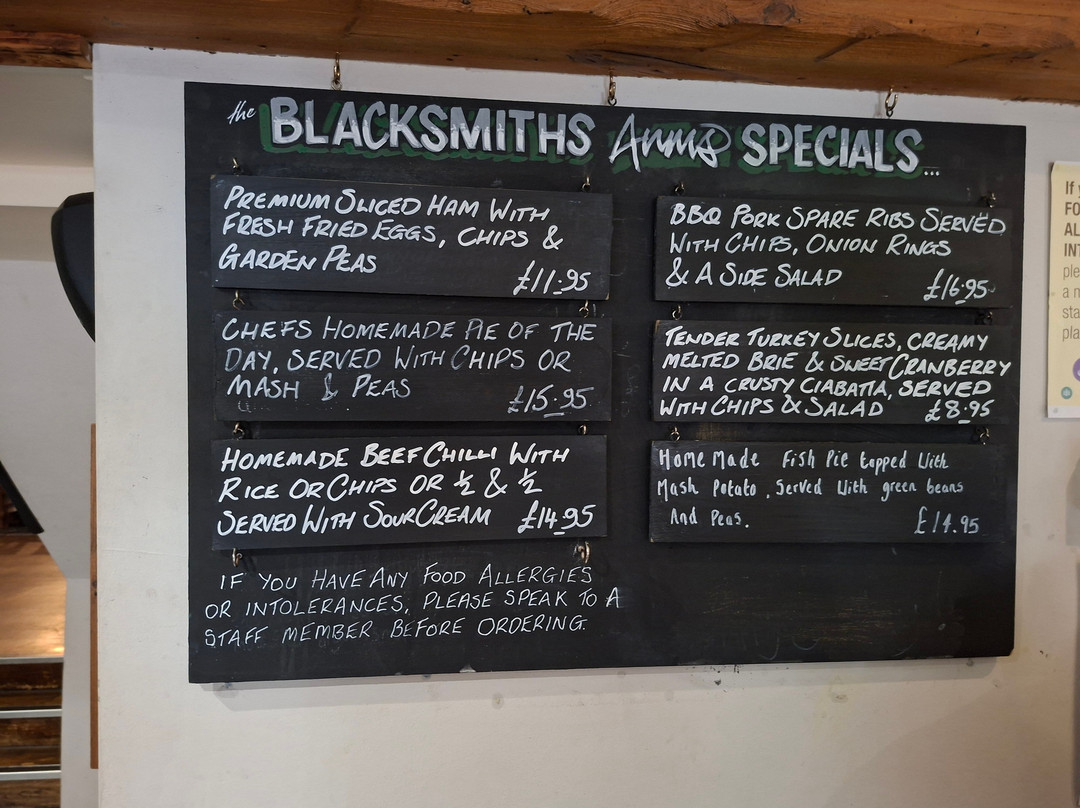 the BLACKSMITHS Arms SPECIALS...
PREMIUM SLICED HAM WITH
FRESH FRIED EGGS, CHIPS &
GARDEN PEAS
£11.95
CHEFS HOMEMADE PIE OF THE
DAY, SERVED WITH CHIPS OR
MASH & PEAS
£15.95
HOMEMADE BEEF CHILLI WITH
RICE OR CHIPS OR ½ & ½
SERVED WITH SOUR CREAM £14.95
IF YOU HAVE ANY FOOD ALLERGIES
OR INTOLERANCES, PLEASE SPEAK TO A
STAFF MEMBER BEFORE ORDERING.
BBQ PORK SPARE RIBS SERVED
WITH CHIPS, ONION RINGS
& A SIDE SALAD £16.95
TENDER TURKEY SLICES, CREAMY
MELTED BRIE & SWEET CRANBERRY
IN A CRUSTY CIABATTA, SERVED
WITH CHIPS & SALAD £8.95
Home Made Fish Pie topped With
Mash Potato. Served With green beans
And Peas. £14.95
If
FO
AL
INT
ple
a m
sta
pla